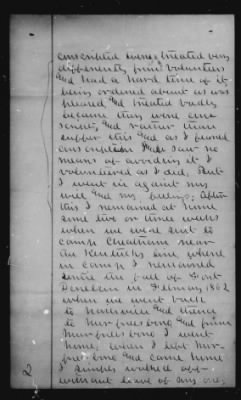 conscripted were treated very
differently from volunteers
and had a hard time of it
being ordered about as was
pleased, and treated badly
because they were con
scripts, and rather than
suffer this and as I found
conscription I saw no
means of avoiding it I
volunteered as I did. But
I went in against my
will and my feelings. After
this I remained at home
some two or three weeks
when we were sent to
camp Cheatham near
the Kentucky line where
in camp I remained
until the fall of Fort
Donelson in February 1862
when we went back
to Nashville and thence
to Murfreesboro and from
Murfreesboro I went
home, when I left Mur-
freesboro and came home
I simply walked off
without leave of any one,
2